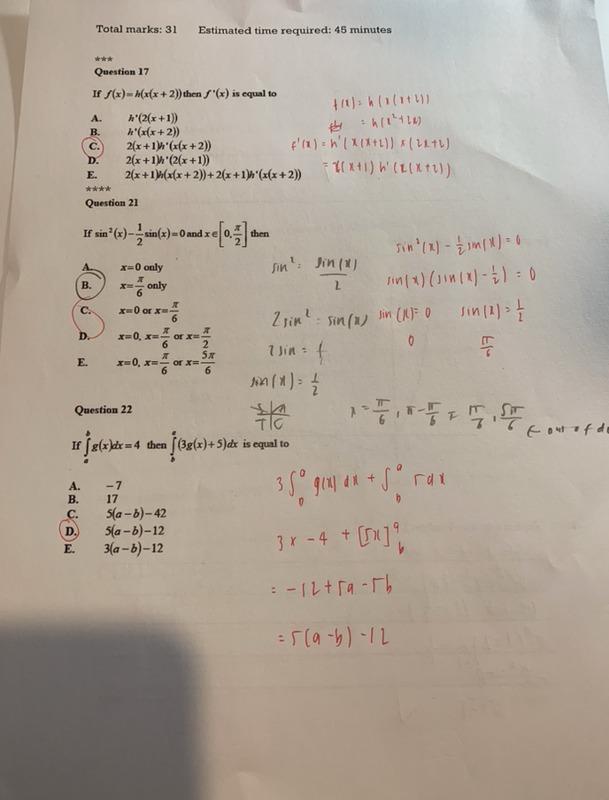 Total marks: 31 Estimated time required: 45 minutes
***
Question 17
If f(x) = h(x(x + 2)) then f '(x) is equal to
A. h'(2(x+1))
B. h'(x(x+2))
C. 2(x+1)h'(x(x+2))
D. 2(x+1)h'(2(x+1))
E. 2(x+1)h(x(x+2))+2(x+1)h'(x(x+2))
f(x) = h(x(x+2))
= h(x²+2x)
f'(x) = h'(x(x+2)) × (2x+2)
= 2(x+1) h'(x(x+2))
****
Question 21
If sin²(x) − 1/2 sin(x) = 0 and x ∈ [0, π/2] then
A. x=0 only
B. x= π/6 only
C. x=0 or x= π/6
D. x=0, x= π/6 or x= π/2
E. x=0, x= π/6 or x= 5π/6
sin² = sin(x)/2
2 sin² = sin(x)
sin(x) = 1/2
S A
T C
x = π/6, π − π/6
π/6, 5π/6
sin²(x) − 1/2 sin(x) = 0
sin(x) (sin(x) − 1/2) = 0
sin(x) = 0 sin(x) = 1/2
0 π/6
Question 22
If ∫ₐᵇ g(x)dx = 4 then ∫ᵇᵃ (3g(x)+5)dx is equal to
A. −7
B. 17
C. 5(a−b)−42
D. 5(a−b)−12
E. 3(a−b)−12
3 ∫ᵇᵃ g(x) dx + ∫ᵇᵃ 5 dx
3 × −4 + [5x]ᵃᵇ
= −12 + 5a − 5b
= 5(a−b) −12